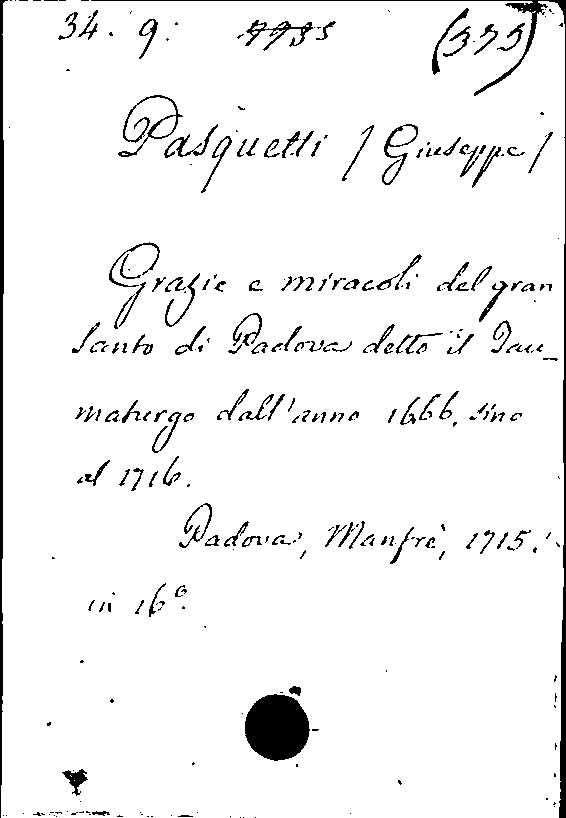 34. 9. 9935 (375)
Pasquetti / Giuseppe /
Grazie e miracoli del gran
Santo di Padova detto il Tau_
maturgo dall'anno 1666. sino
al 1716.
Padova, Manfrè, 1715.
in 16°.